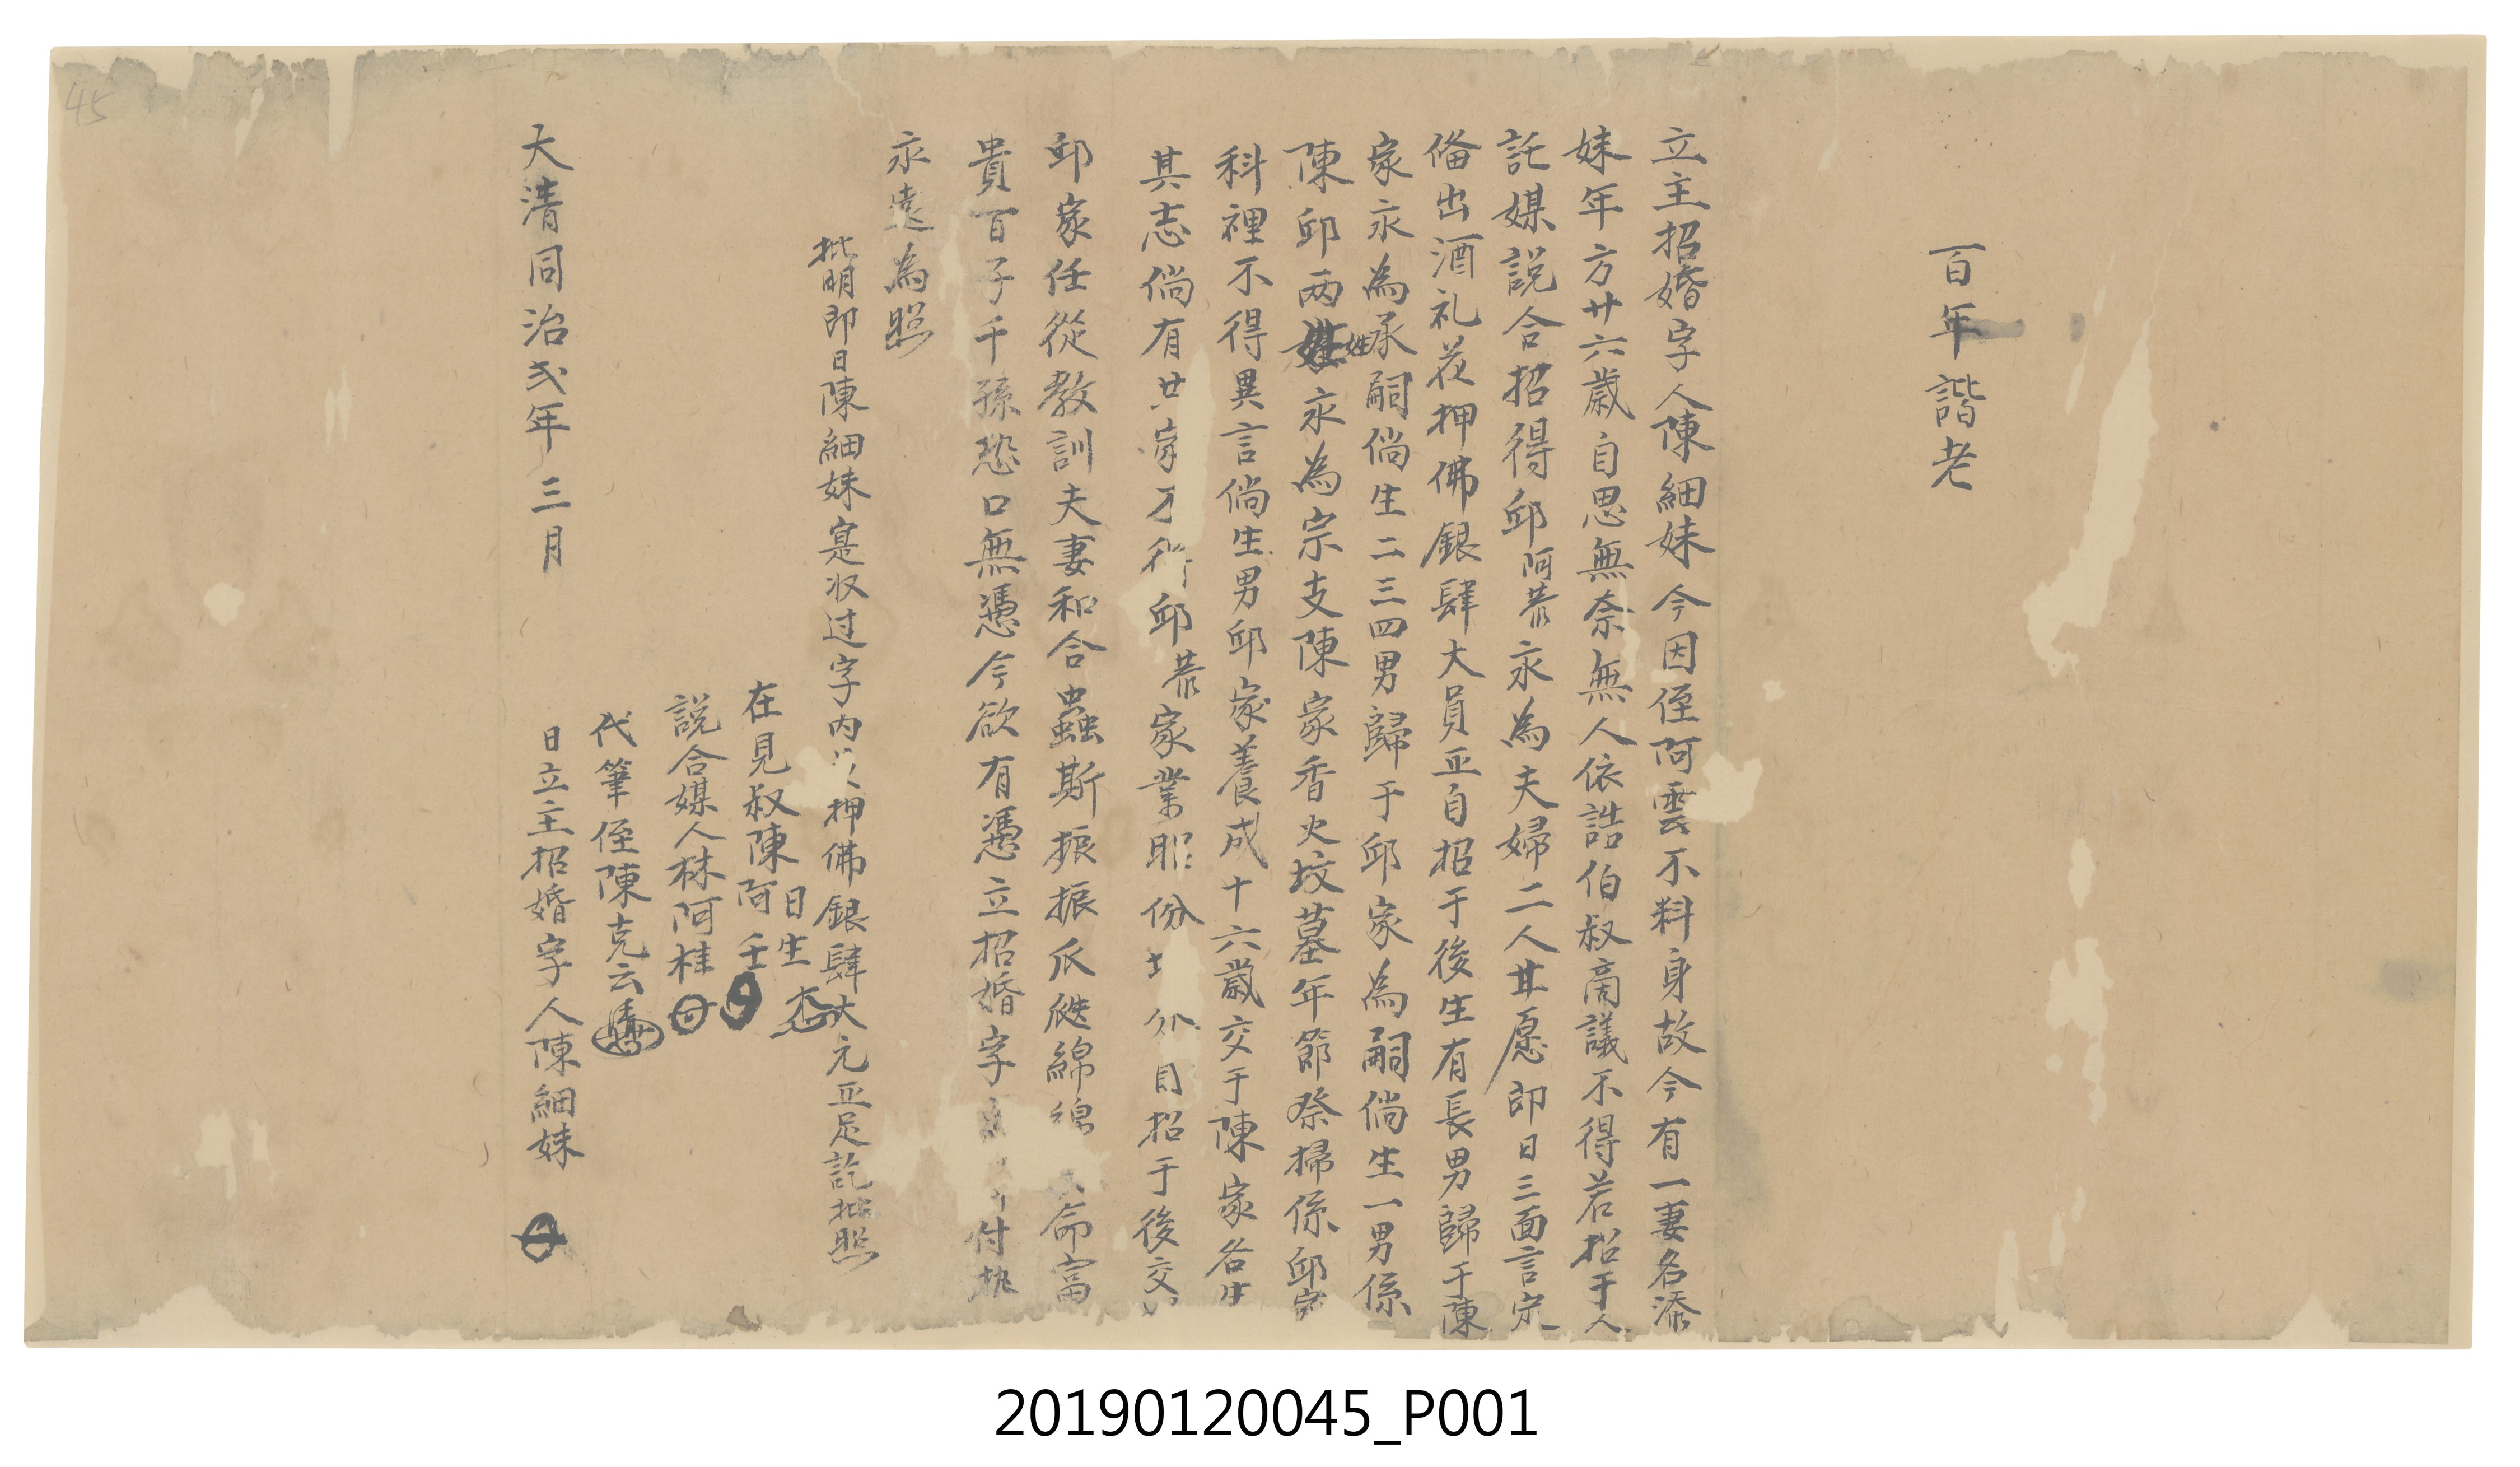 百年諧老
立主招婚字人陳細妹今因侄阿雲不料身故今有一妻名添
妹年方廿六歲自思無奈無人依誥伯叔啇議不得若招于人
託媒說合招得邱阿恭永為夫婦二人甘愿即日三面言定
俻出酒礼花押佛銀肆大員正自招于後生有長男歸于陳
家永為承嗣倘生二三四男歸于邱家為嗣倘生一男係
陳邱两姓永為宗支陳家香火坟墓年節祭掃係邱家
科裡不得異言倘生男邱家養成十六歲交于陳家各生
其志倘有 家 邱恭家業 份 招于後交
邱家任從教訓夫妻和合螽斯振振瓜瓞綿綿 命富
貴百子千孫恐口無憑今欲有憑立招婚字 付执
永遠為照
批明即日陳細妹寔収过字内 押佛銀肆大元正足訖批照
在見叔陳阿 日生 壬
說合媒人林阿桂
代筆侄陳克云
大清同治弍年三月 日立主招婚字人陳細妹
45
20190120045_P001